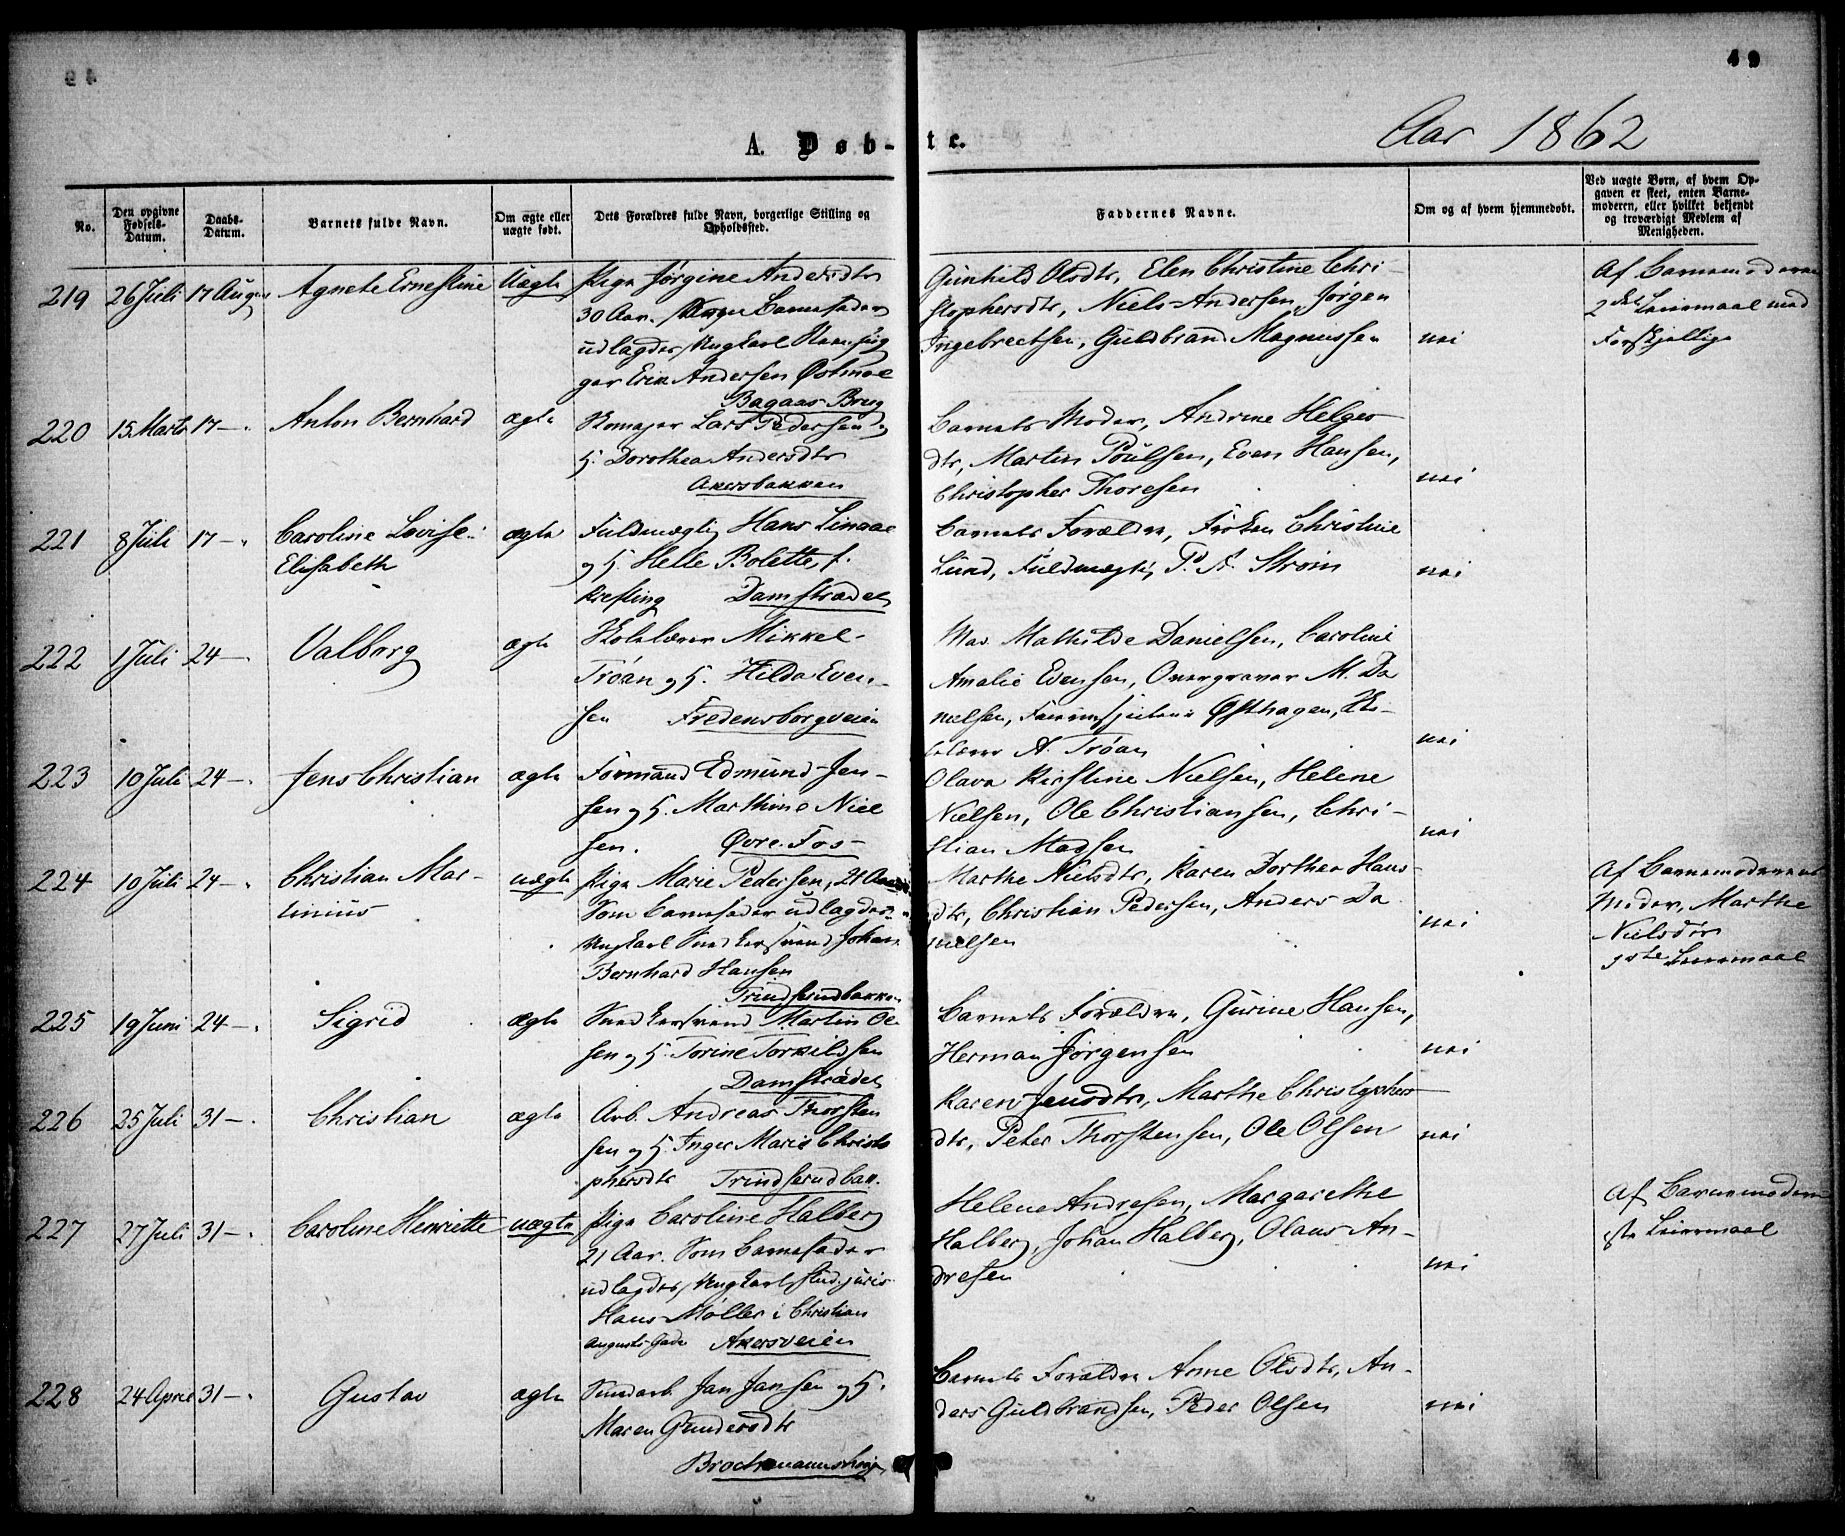 49
Aar 1862
A. Døb-
te.
No.
Den opgivne Fødsels-Datum.
Daabs-Datum.
Barnets fulde Navn.
Om ægte eller uægte født.
Dets Forældres fulde Navn, borgerlige Stilling og Opholdssted.
Faddernes Navne.
Om og af hvem hjemmedøbt.
Ved uægte Børn, af hvem Op-
gaven er skeet, enten Barne-
moderen, eller hvilket bekjendt
og troværdigt Medlem af
Menigheden.
219 26 Juli 17 August Agnete Ernestine Uægte
Pige Jørgine Andersdtr
30 Aar. Barnefader
udlagdes, Ungkarl
Erik Andersen Østmoe
Bagaas Brug
Gunhild Olsdtr, Elen Christine Chri-
stophersdtr, Niels Andersen, Jørgen
Ingebrectsen, Guldbrand Magnussen
nei
Af Barnemoderen
2det Leiermaal med
Forskjellige
220 15 Marts 17 - Anton Bernhard ægte
Skomager Lars Pedersen og
H. Dorothea Andersdtr
Akersbakken
Barnets Moder, Andrine Helges-
dtr, Martin Poulsen, Even Hansen,
Christopher Thoresen
nei
221 8 Juli 17 - Caroline Lovise
Elisabeth
ægte
Fuldmægtig Hans Linaae
og H. Helle Bolette f.
Krefting Damstrædet
Barnets Forældre, Frøken Christine
Lund, Fuldmægtig P. A. Strøm
nei
222 1 Juli 24 - Valborg ægte
Skolelærer Mikkel
Trøan og H. Hilda Even-
sen Fredensborgveien
Mad. Mathilde Danielsen, Caroline
Amalie Evensen, Overgraver M. Da
nielsen, Østhagen, Sko-
lelærer A. Trøan
nei
223 10 Juli 24 - Jens Christian ægte
Formand Edmund Jen-
sen og H. Marthine Niel
sen. Øvre Fos
Olava Kirstine Nielsen, Helene
Nielsen, Ole Christiansen, Chri-
stian Madsen
nei
224 10 Juli 24 - Christian Mar-
tinius
uægte
Pige Marie Pedersen, 21 Aar
Som Barnefader udlagdes
Ungkarl Snedkersvend Johan
Bernhard Hansen
Trindserudbakken
Marthe Nielsdtr, Karen Dorthea Hans-
dtr, Christian Pedersen, Anders Da
nielsen
nei
Af Barnemoderens
Moder, Marthe
Nielsdtr
1ste Leiermaal
225 19 Juni 24 - Sigrid ægte
Snedkersvend Martin Ol
sen og H. Torine Torkildsen
Damstrædet
Barnets Forældre, Gurine Hansen,
Herman Jørgensen
nei
226 25 Juli 31 - Christian ægte
Arb. Andreas Thorsten
sen og H. Inger Marie Christo
phersdtr Trindserudbak.
Karen Jensdtr, Marthe Christophers
dtr, Peter Thorstensen, Ole Olsen
nei
227 27 Juli 31 - Caroline Henriette uægte
Pige Caroline Halberg
21 Aar. Som Barnefader
udlagdes, Ungkarl, Stud. juris
Hans Møller i Christian
Augusts Gade Akersveien
Helene Andresen, Margarethe
Halberg, Johan Halberg, Olaus An-
dresen
nei
Af Barnemoderen
1ste Leiermaal
228 24 April 31 - Gustav ægte
Jan Jansen og H.
Maren Gundersdtr
Brochmannshougen
Barnets Forældre Anne Olsdtr, An-
ders Guldbrandsen, Peder Olsen
nei